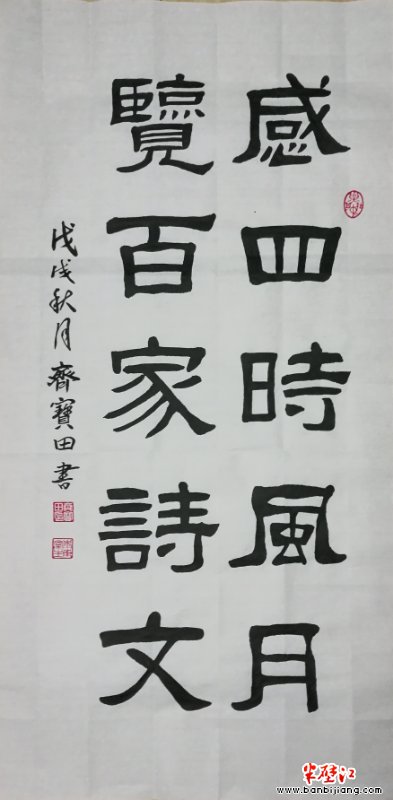 感四時風月
覽百家詩文
戊戌秋月齊寶田書
半壁江
www.banbijiang.com